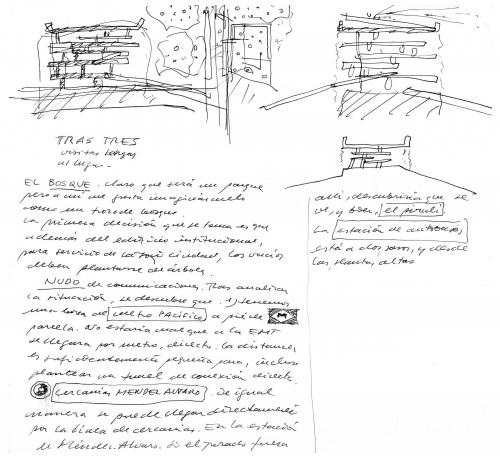 TRAS TRES
visitas largas
al lugar.
EL BOSQUE. Claro que será un parque
pero a mí me gusta imaginármelo
como un trozo de bosque.
La primera decisión que se toma es que
además del edificio institucional,
para servicio de la ciudad, los vacíos
deben plantarse de árboles.
NUDO de comunicaciones. Tras analizar
la situación, se descubre que. 1) tenemos
una boca de metro PACÍFICO a pie de M
parcela. No estaría mal que a la EMT
se llegara por metro, directo. La distancia
es suficientemente pequeña para, incluso
plantear un túnel de conexión directa.
Cercanías MENDEZ ALVARO. De igual
manera se puede llegar directamente
por la línea de cercanías. En la estación
de Méndez Alvaro. Si el jurado fuera
allí, descubriría que se
ve, y bien, el pirulí.
La estación de autobuses,
está a dos pasos, y desde
las plantas altas